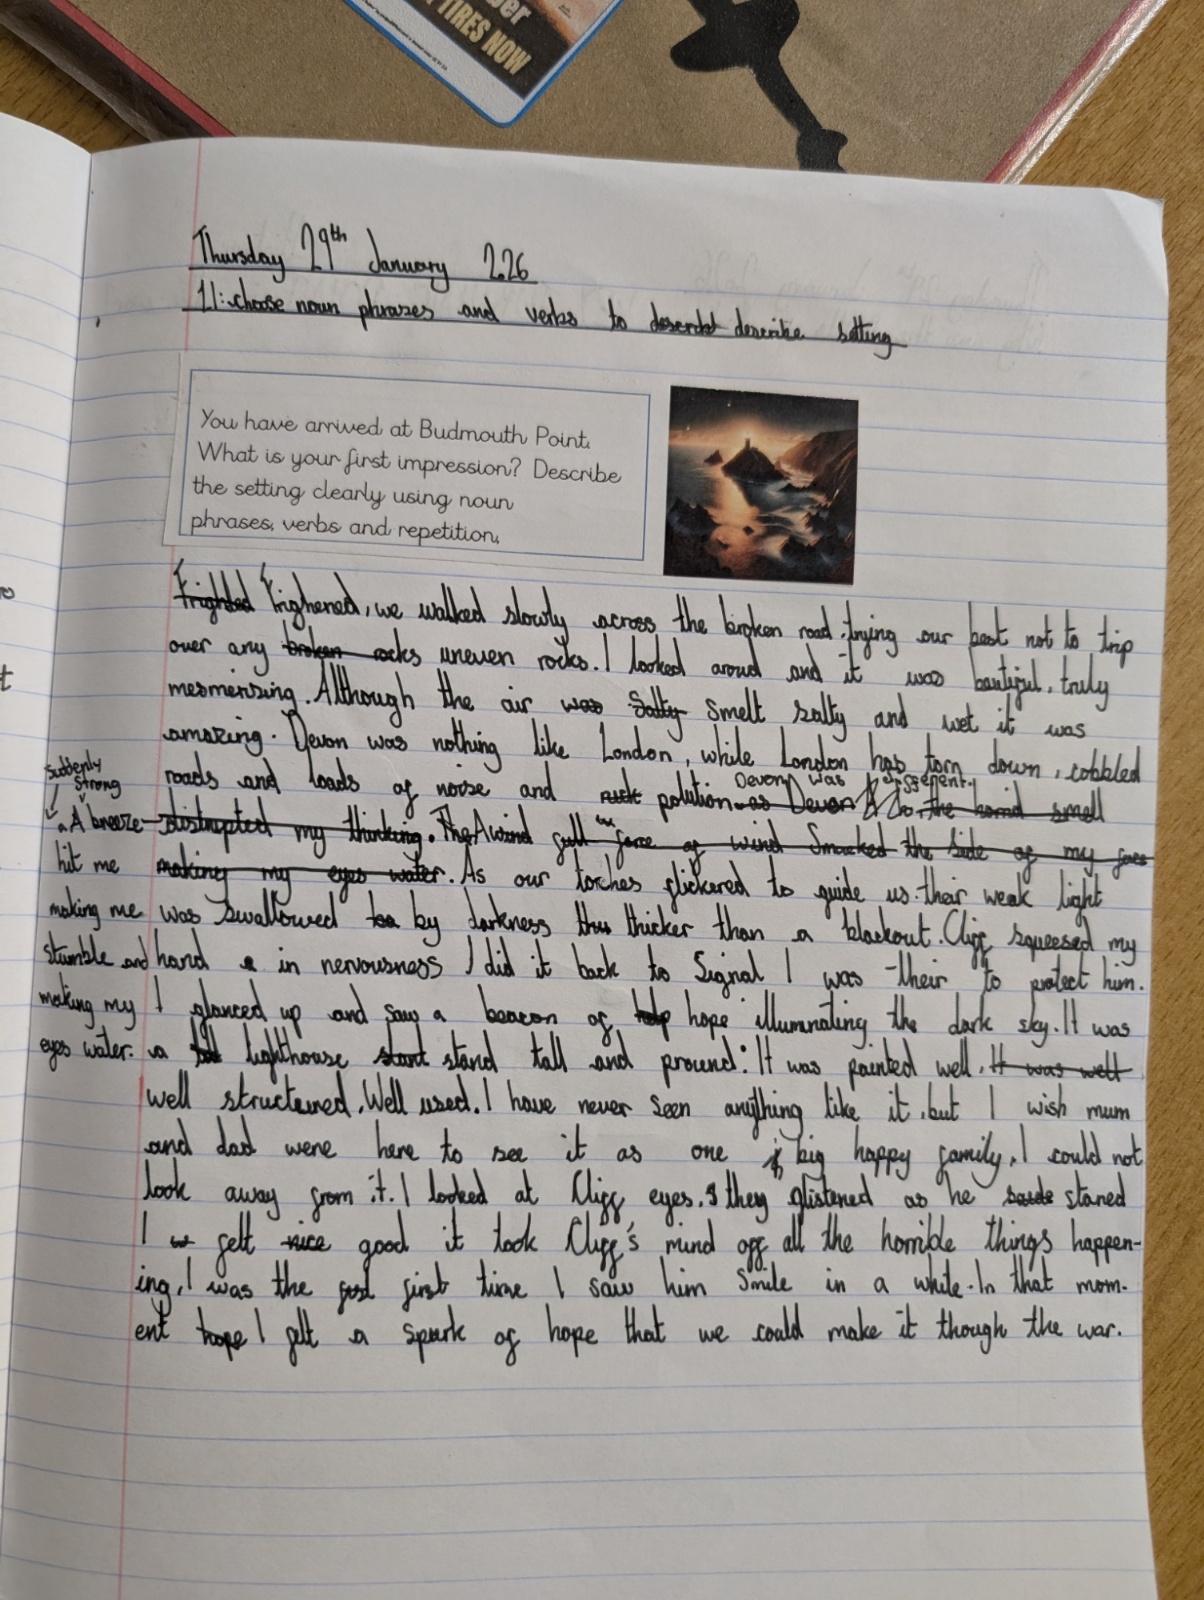 TIRES NOW
Thursday 29th January 2.26
LI: choose noun phrases and verbs to describe setting
You have arrived at Budmouth Point.
What is your first impression? Describe
the setting clearly using noun
phrases, verbs and repetition.
Frighted Frighened, we walked slowly across the broken road, trying our best not to trip
over any broken rocks uneven rocks. I looked aroud and it was beutiful, truly
mesmerising. Although the air was Salty smelt salty and wet it was
amazing. Devon was nothing like London, while London has torn down, cobbled
roads and loads of noise and polution Devon was different.
Suddenly
Strong
A breeze distrupted my thinking. The A wind full force of wind Smacked the side of my face
hit me making my eyes water. As our torches flickered to guide us. their weak light
making me was swallowed by darkness thicker than a blackout. Cliff squeesed my
stumble and hand in nervousness I did it back to Signal I was their to protect him.
making my I glanced up and saw a beacon of hope illuminating the dark sky. It was
eyes water. a lighthouse stand tall and pround: It was painted well. It was well
well structured, Well used. I have never seen anything like it, but I wish mum
and dad were here to see it as one big happy family, I could not
look away from it. I looked at Cliff eyes. they glistened as he stared
I felt nice good it took Cliff's mind off all the horrible things happen-
ing, I was the first time I saw him smile in a while. In that mom-
ent hope I felt a spark of hope that we could make it though the war.